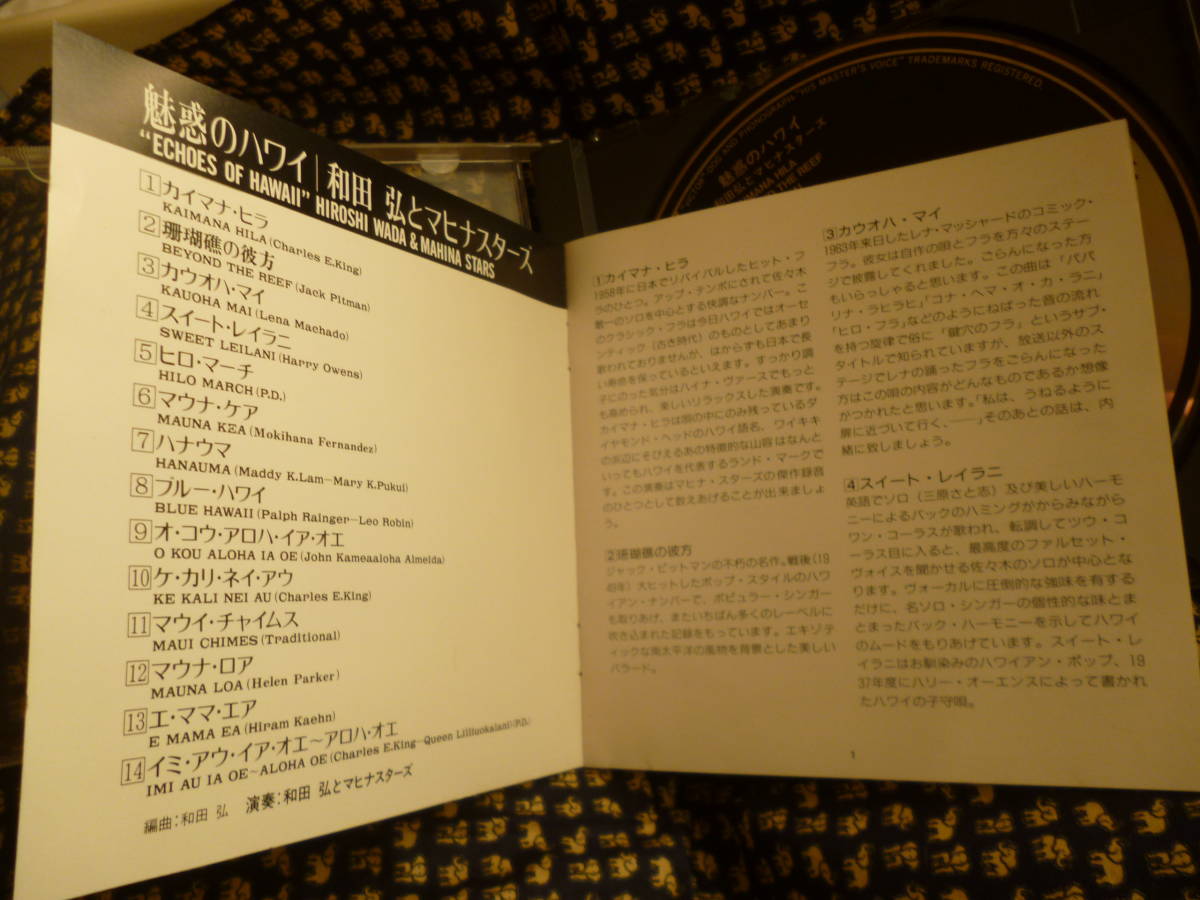 魅惑のハワイ｜和田 弘とマヒナスターズ
"ECHOES OF HAWAII" HIROSHI WADA & MAHINA STARS
1 カイマナ・ヒラ
KAIMANA HILA (Charles E.King)
2 珊瑚礁の彼方
BEYOND THE REEF (Jack Pitman)
3 カウオハ・マイ
KAUOHA MAI (Lena Machado)
4 スイート・レイラニ
SWEET LEILANI (Harry Owens)
5 ヒロ・マーチ
HILO MARCH (P.D.)
6 マウナ・ケア
MAUNA KEA (Mokihana Fernandez)
7 ハナウマ
HANAUMA (Maddy K.Lam–Mary K.Pukui)
8 ブルー・ハワイ
BLUE HAWAII (Palph Rainger–Leo Robin)
9 オ・コウ・アロハ・イア・オエ
O KOU ALOHA IA OE (John Kameaaloha Almeida)
10 ケ・カリ・ネイ・アウ
KE KALI NEI AU (Charles E.King)
11 マウイ・チャイムス
MAUI CHIMES (Traditional)
12 マウナ・ロア
MAUNA LOA (Helen Parker)
13 エ・ママ・エア
E MAMA EA (Hiram Kaehn)
14 イミ・アウ・イア・オエ～アロハ・オエ
IMI AU IA OE~ALOHA OE (Charles E.King–Queen Liliuokalani) (P.D.)
編曲：和田 弘 演奏：和田 弘とマヒナスターズ
1 カイマナ・ヒラ
1958年に日本でリバイバルしたヒット・フ
ラのひとつ。アップ・テンポにされて佐々木
敢一のソロを中心とする快調なナンバー。こ
のクラシック・フラは今日ハワイではオーセ
ンティック（古き時代）のものとしてあまり
歌われておりませんが、はからずも日本で長
い寿命を保っているといえます。すっかり調
子にのった気分はハイナ・ヴァースでもっと
も高められ、楽しいリラックスした演奏です。
カイマナ・ヒラは唄の中にのみ残っているダ
イヤモンド・ヘッドのハワイ語名、ワイキキ
の浜辺にそびえるあの特徴的な山容はなんと
いってもハワイを代表するランド・マークで
す。この演奏はマヒナ・スターズの傑作録音
のひとつとして数えあげることが出来ましょ
う。
2 珊瑚礁の彼方
ジャック・ピットマンの不朽の名作。戦後（19
49年）大ヒットしたポップ・スタイルのハワ
イアン・ナンバーで、ポピュラー・シンガー
も取りあげ、またいちばん多くのレーベルに
吹き込まれた記録をもっています。エキゾテ
ィックな南太平洋の風物を背景とした美しい
バラード。
3 カウオハ・マイ
1963年来日したレナ・マッシャードのコミック・
フラ。彼女は自作の唄とフラを方々のステー
ジで披露してくれました。ごらんになった方
もいらっしゃると思います。この曲は「パパ
リナ・ラヒラヒ」「コナ・ヘマ・オ・カ・ラニ」
「ヒロ・フラ」などのようにねばった音の流れ
を持つ旋律で俗に「鍵穴のフラ」というサブ・
タイトルで知られていますが、放送以外のス
テージでレナの踊ったフラをごらんになった
方はこの唄の内容がどんなものであるか想像
がつかれたと思います。「私は、うねるように
扉に近づいて行く、——」そのあとの話は、内
緒に致しましょう。
4 スイート・レイラニ
英語でソロ（三原さと志）及び美しいハーモ
ニーによるバックのハミングがからみながら
ワン・コーラスが歌われ、転調してツウ・コ
ーラス目に入ると、最高度のファルセット・
ヴォイスを聞かせる佐々木のソロが中心とな
ります。ヴォーカルに圧倒的な強味を有する
だけに、名ソロ・シンガーの個性的な味とま
とまったバック・ハーモニーを示してハワイ
のムードをもりあげています。スイート・レ
イラニはお馴染みのハワイアン・ポップ、19
37年度にハリー・オーエンスによって書かれ
たハワイの子守唄。
1
"VICTOR" DOG AND PHONOGRAPH "HIS MASTER'S VOICE" TRADEMARKS REGISTERED.
魅惑のハワイ
和田弘とマヒナスターズ